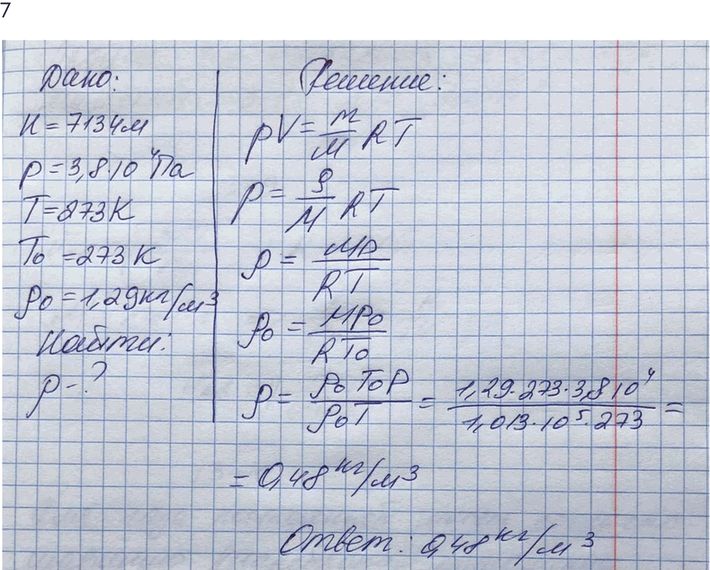 7
Дано:
h = 7134м
p = 3,8·10⁴Па
T = 273К
T₀ = 273К
ρ₀ = 1,29кг/м³
Найти:
ρ - ?
Решение:
pV = m/M RT
p = ρ/M RT
ρ = Mp/RT
ρ₀ = Mp₀/RT₀
ρ = ρ₀T₀p/p₀T = 1,29·273·3,8·10⁴/1,013·10⁵·273 =
= 0,48 кг/м³
Ответ: 0,48 кг/м³